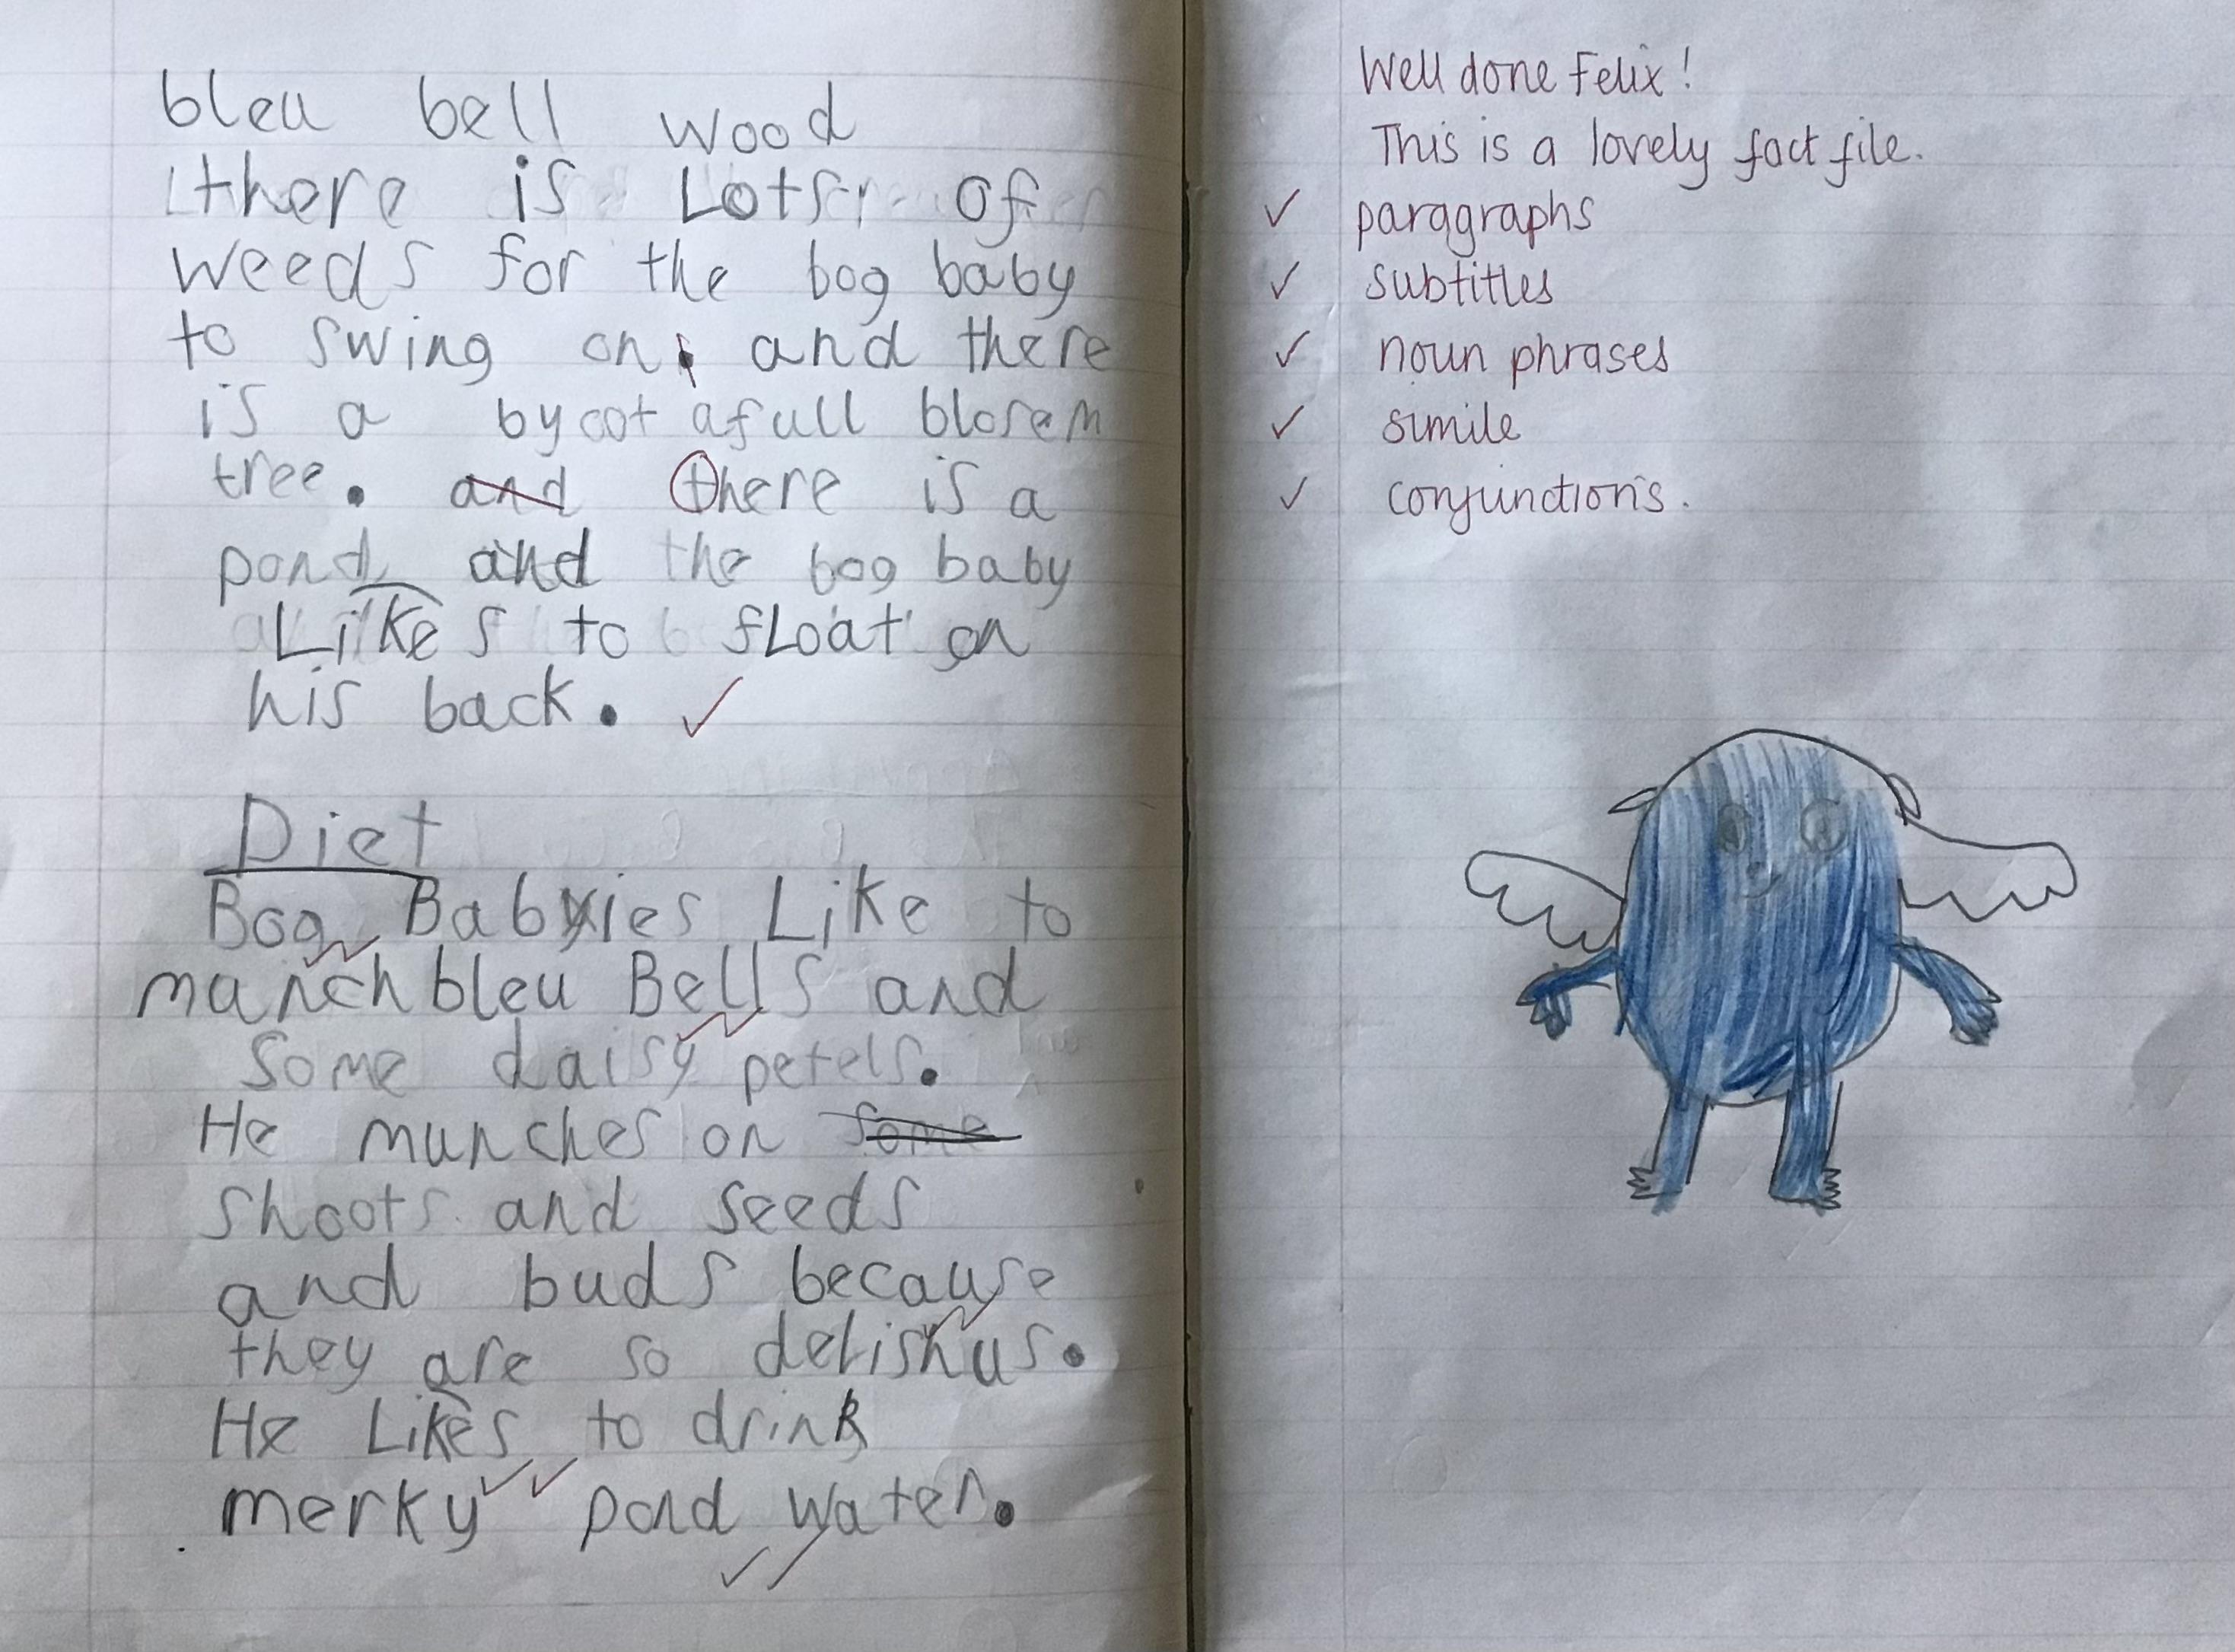 bleu bell wood
there is Lots of
weeds for the bog baby
to swing on, and there
is a bycot afull blosem
tree. and there is a
pond and the bog baby
Likes to fLoat on
his back.
Diet
Bog Babies Like to
manch bleu Bells and
Some daisy petels.
He munches on some
shoots and seeds
and buds because
they are so delishus.
He Likes to drink
merky pond water.
Well done Felix!
This is a lovely fact file.
✓ paragraphs
✓ subtitles
✓ noun phrases
✓ simile
✓ conjunctions.